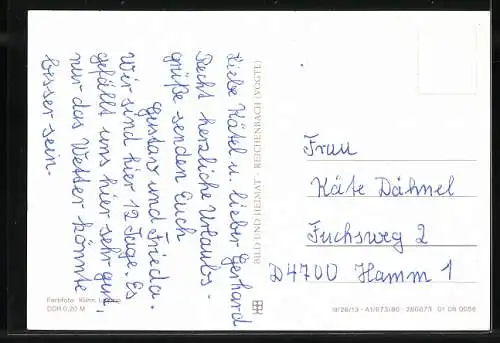 Liebe Kätel u. lieber Gerhard
Recht herzliche Urlaubs-
grüße senden Euch
Gustav und Frieda.
Wir sind hier 12 Tage. Es
gefällt uns hier sehr gut,
nur das Wetter könnte
besser sein.
BILD UND HEIMAT · REICHENBACH (VOGTL)
Frau
Käte Dähnel
Fuchsweg 2
D4700 Hamm 1
Farbfoto: Kühn,
DDR 0,20 M
III/26/13 · A1/673/80 · 01 09 0056